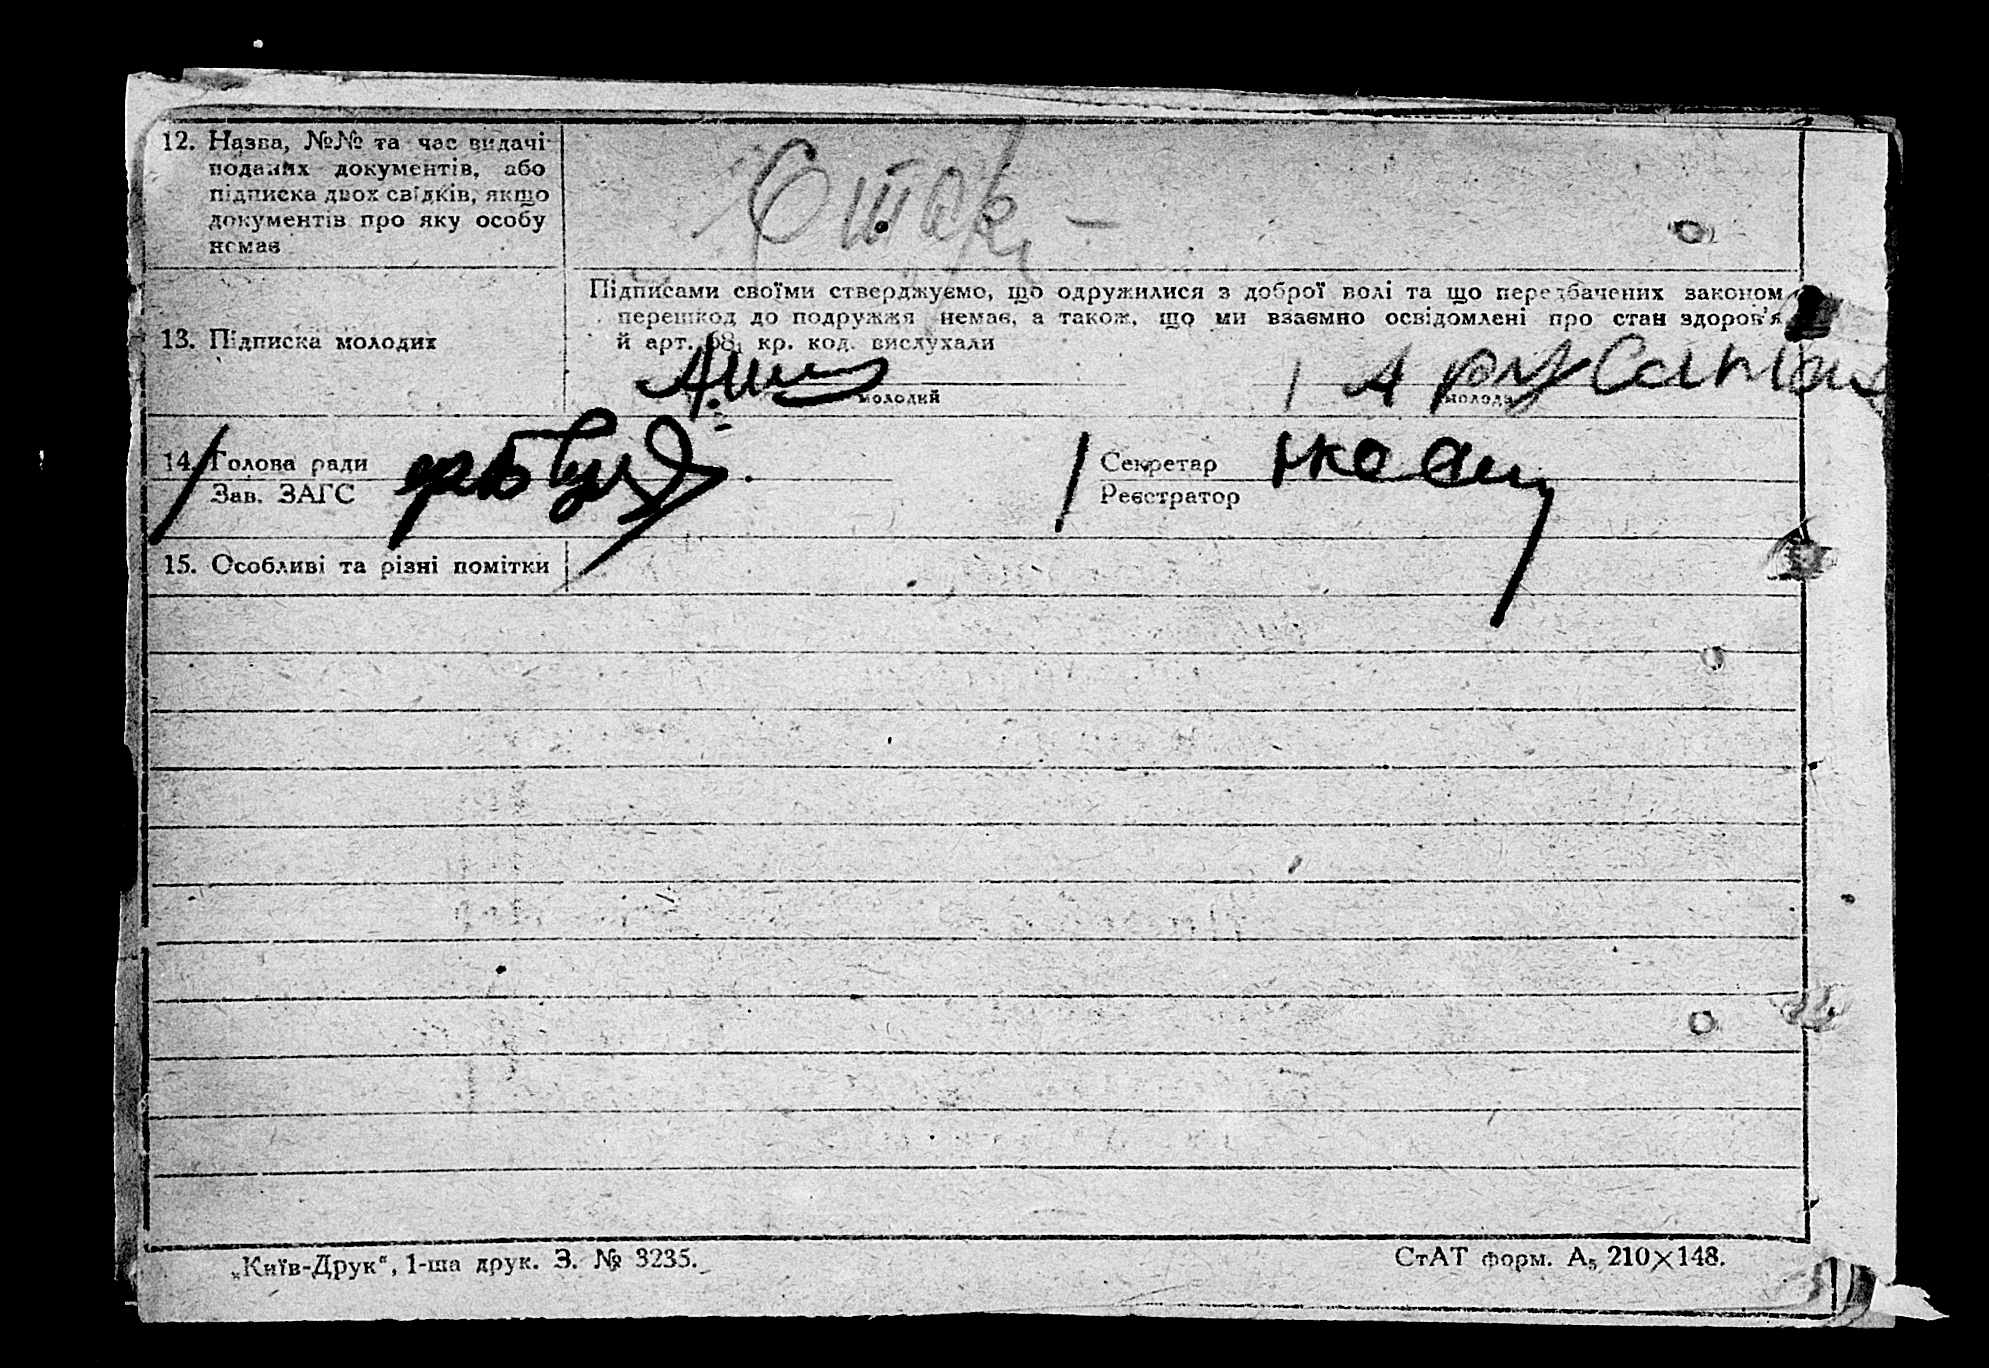 12. Назва, №№ та час видачі
поданих документів, або
підписка двох свідків, якщо
документів про яку особу
немає
Підписами своїми стверджуємо, що одружилися з доброї волі та що передбачених законом
перешкод до подружжя немає, а також, що ми взаємно освідомлені про стан здоров'я
13. Підписка молодих
й арт. кр. код. вислухали
молодий
молода
14. Голова ради
Секретар
Зав. ЗАГС
Реєстратор
15. Особливі та різні помітки
„Київ-Друк“, 1-ша друк. З. № 3235.
СтАТ форм. А₅ 210×148.